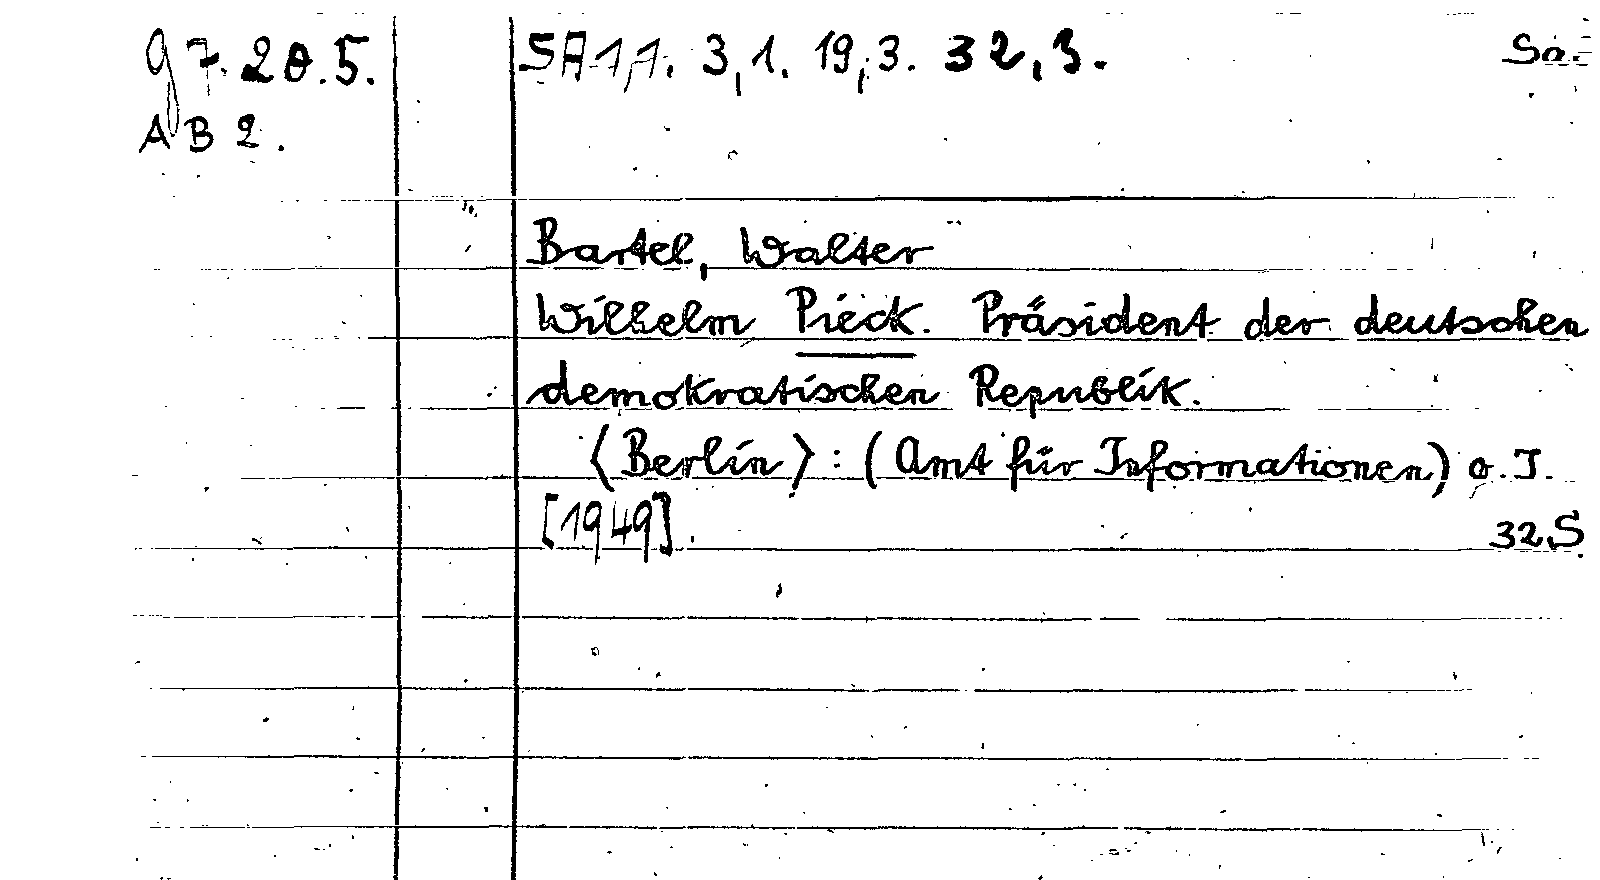 g 7. 20. 5. SA 11. 3,1. 19,3. 32,3. Sa.
AB 2.
Bartel, Walter
Wilhelm Pieck. Präsident der deutschen
demokratischen Republik.
<Berlin>: (Amt für Informationen) o. J.
[1949]. 32 S.